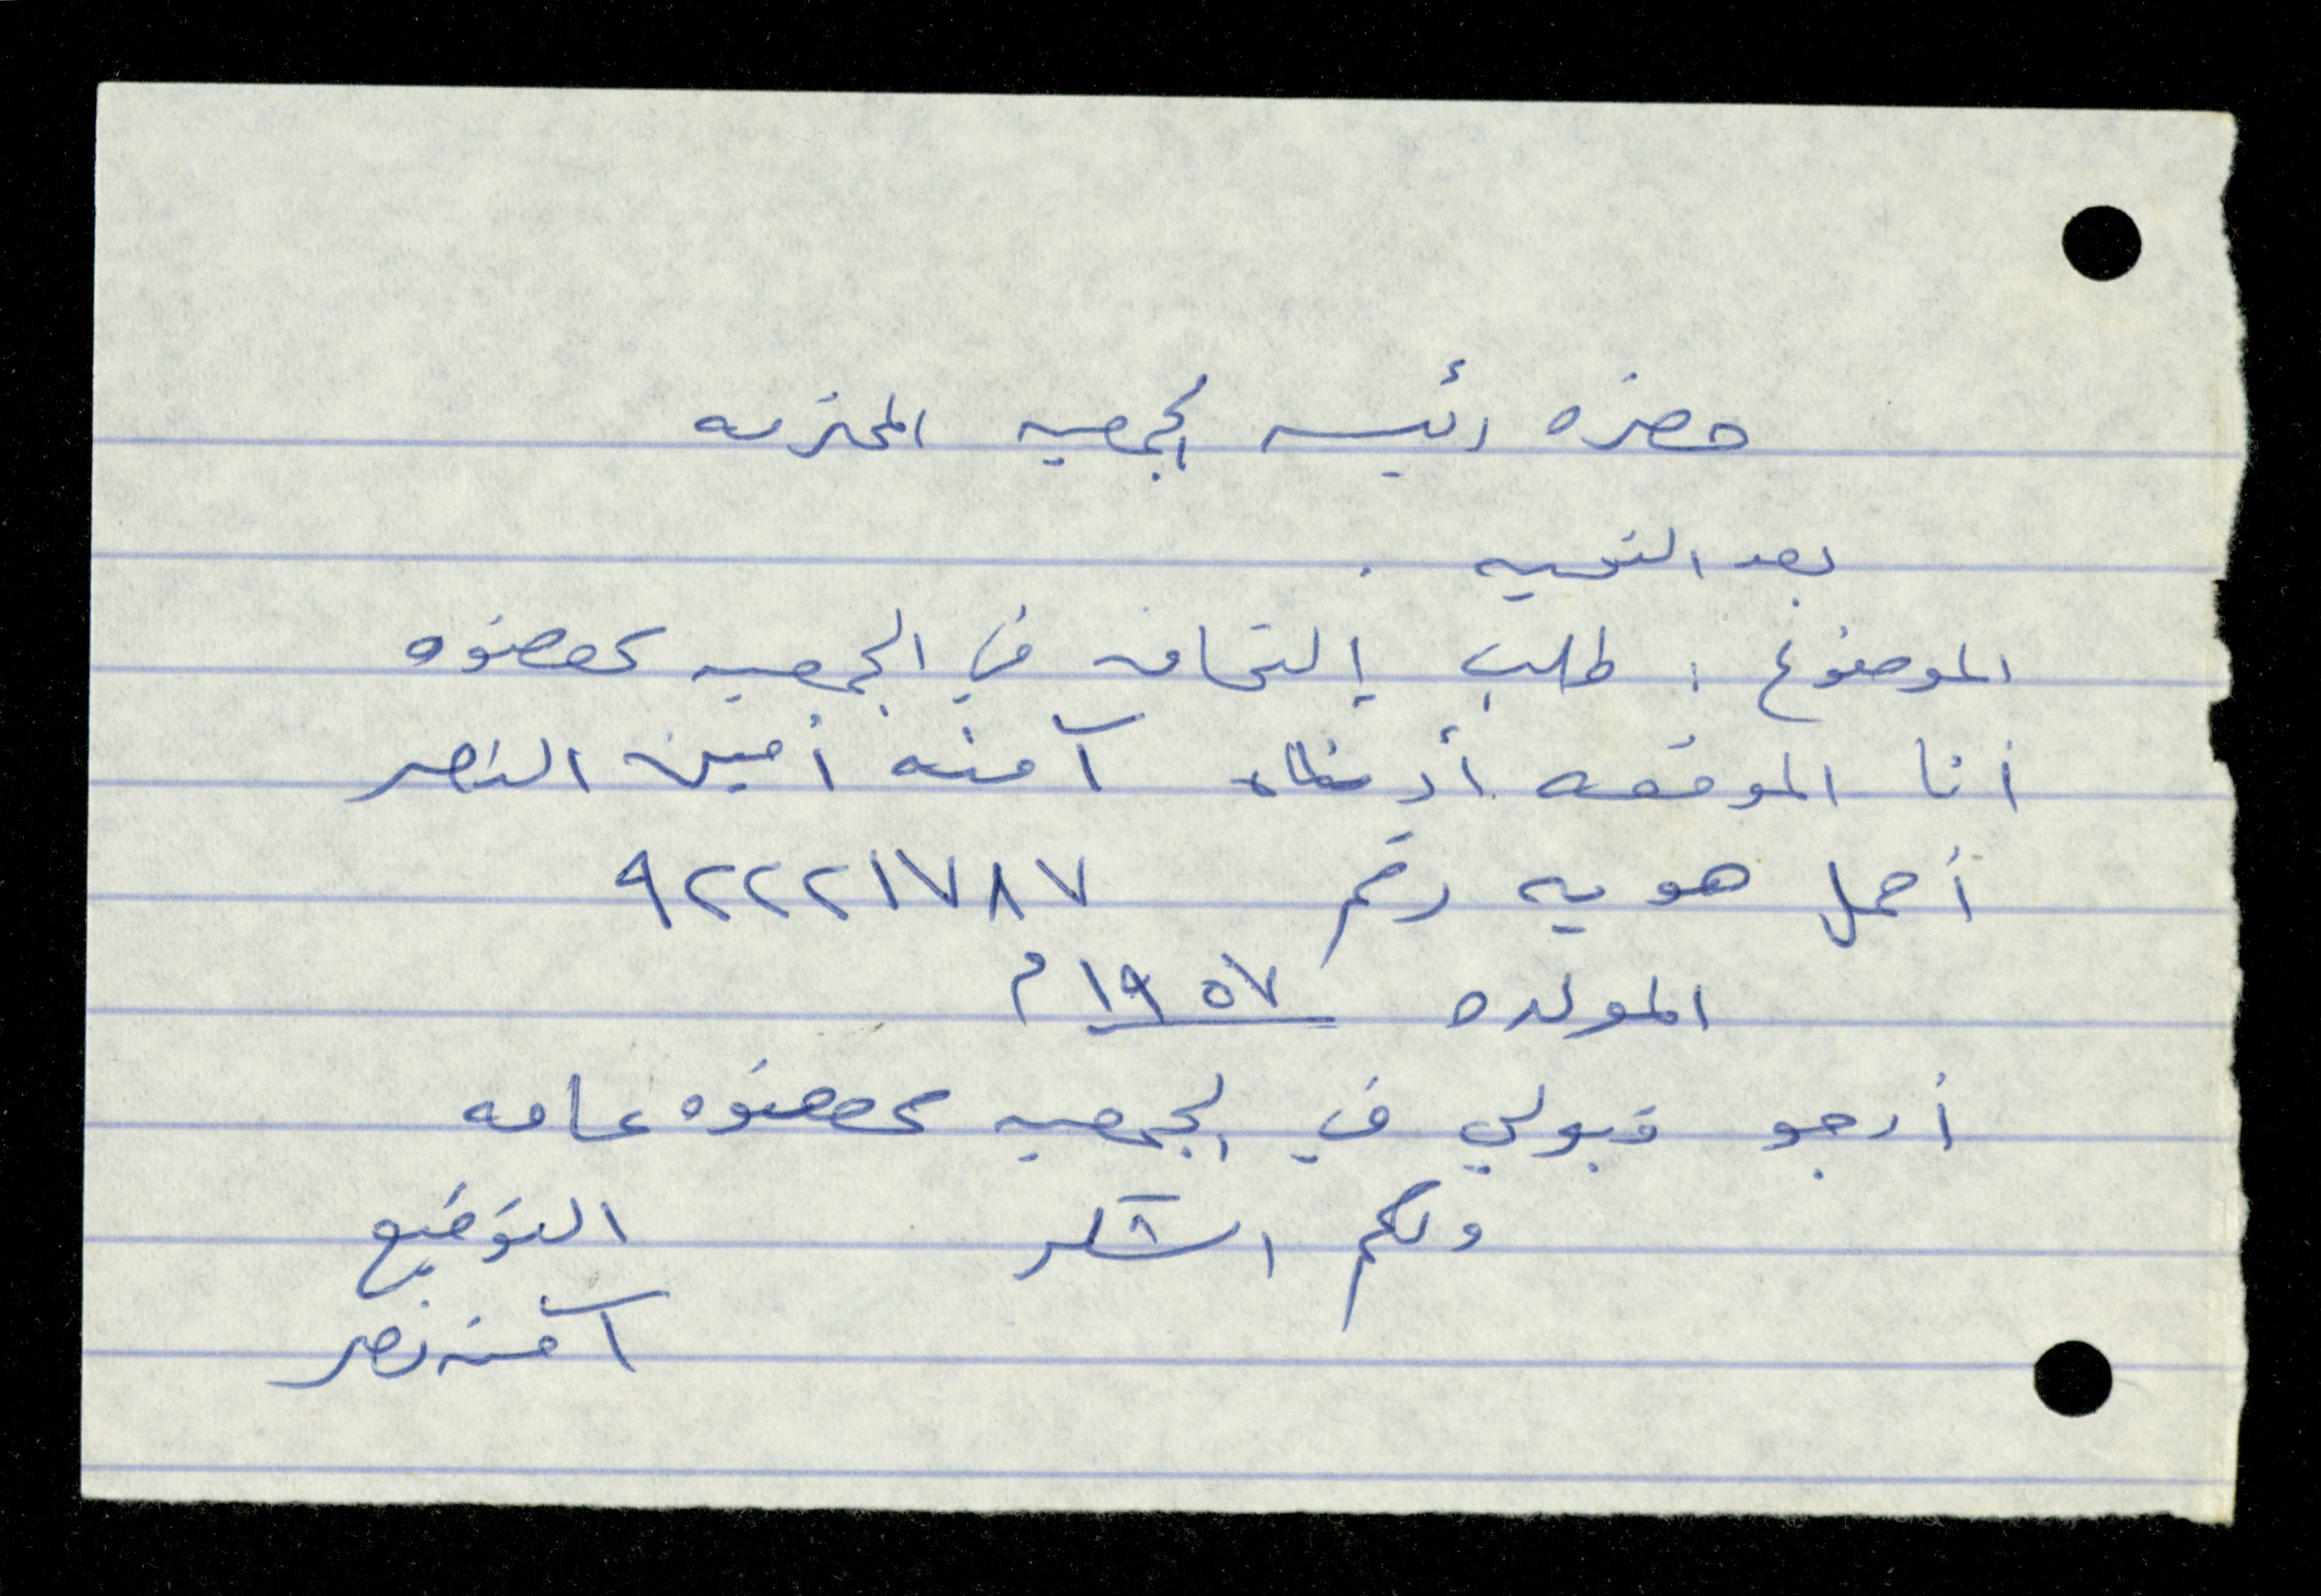 حضره رئيسه الجمعيه المحترمه
بعد التحيه .
الموضوع : طلب إلتحاق في الجمعيه كعضوه
أنا الموقعه أدناه آمنه أمين النصر
أحمل هويه رقم ٩٢٢٢١٧٨٧
المولده ١٩٥٧ م
أرجو قبولي في الجمعيه كعضوه عامه
ولكم الشكر التوقيع
آمنه نصر